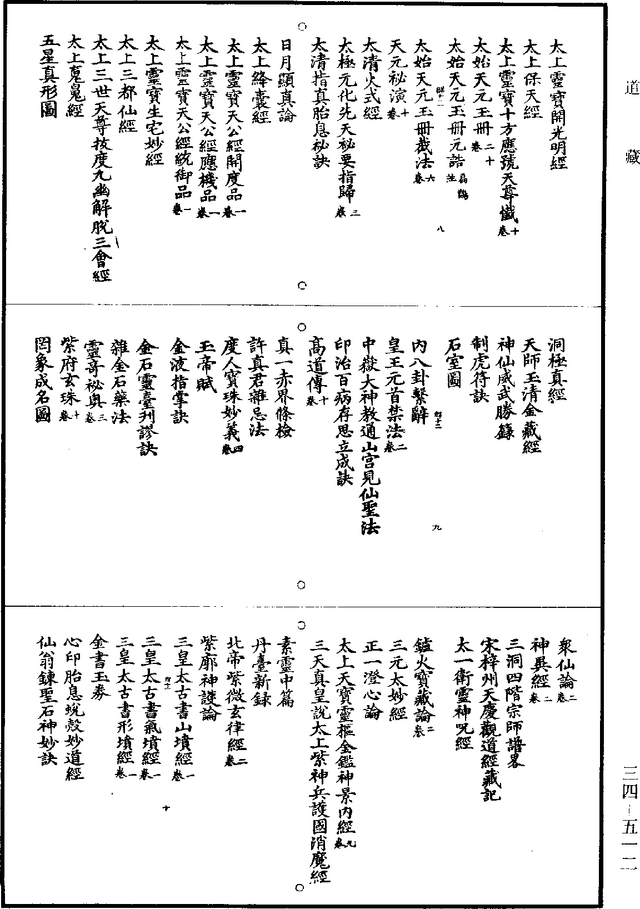 道藏
太上靈寶開光明經
太上保天經
太上靈寶十方應號天尊懺十卷
太始天元玉冊二十卷
太始天元玉冊元誥扁鵲注
太始天元玉冊截法六卷
群十二 八
天元祕演十卷
太清火式經
太極元化先天祕要指歸三卷
太清指真胎息秘訣
日月顯真論
太上絳囊經
太上靈寶天公經開度品一卷
太上靈寶天公經應機品一卷
太上靈寶天公經統御品一卷
太上靈寶生宅妙經
太上三都仙經
太上三世天尊拔度九幽解脫三會經
太上嵬嵬經
五星真形圖
洞極真經
天師玉清金藏經
神仙威武勝籙
制虎符訣
石室圖
群十二 九
內八卦繫辭
皇王元首禁法二卷
中嶽大神教通山宮見仙聖法
印治百病存思立成訣
高道傳十卷
真一赤界條檢
許真君雜忌法
度人寶珠妙義四卷
玉帝賦
金液指掌訣
金石靈臺刋謬訣
雜金石藥法
靈哥祕奥三卷
紫府玄珠十卷
罔象成名圖
衆仙論二卷
神異經二卷
三洞四階宗師譜畧
宋梓州天慶觀道經藏記
太一衛靈神呪經
鑪火寶藏論二卷
三元太妙經
正一澄心論
太上天寶靈樞金鑑神景內經九卷
三天真皇說太上紫神兵護國消魔經
素靈中篇
丹臺新録
北帝紫微玄律經二卷
紫廓神謢論
三皇太古書山墳經一卷
十
三皇太古書氣墳經一卷
三皇太古書形墳經一卷
金書玉券
心印胎息蛻殼妙道經
仙翁鍊聖石神妙訣
三四—五一二